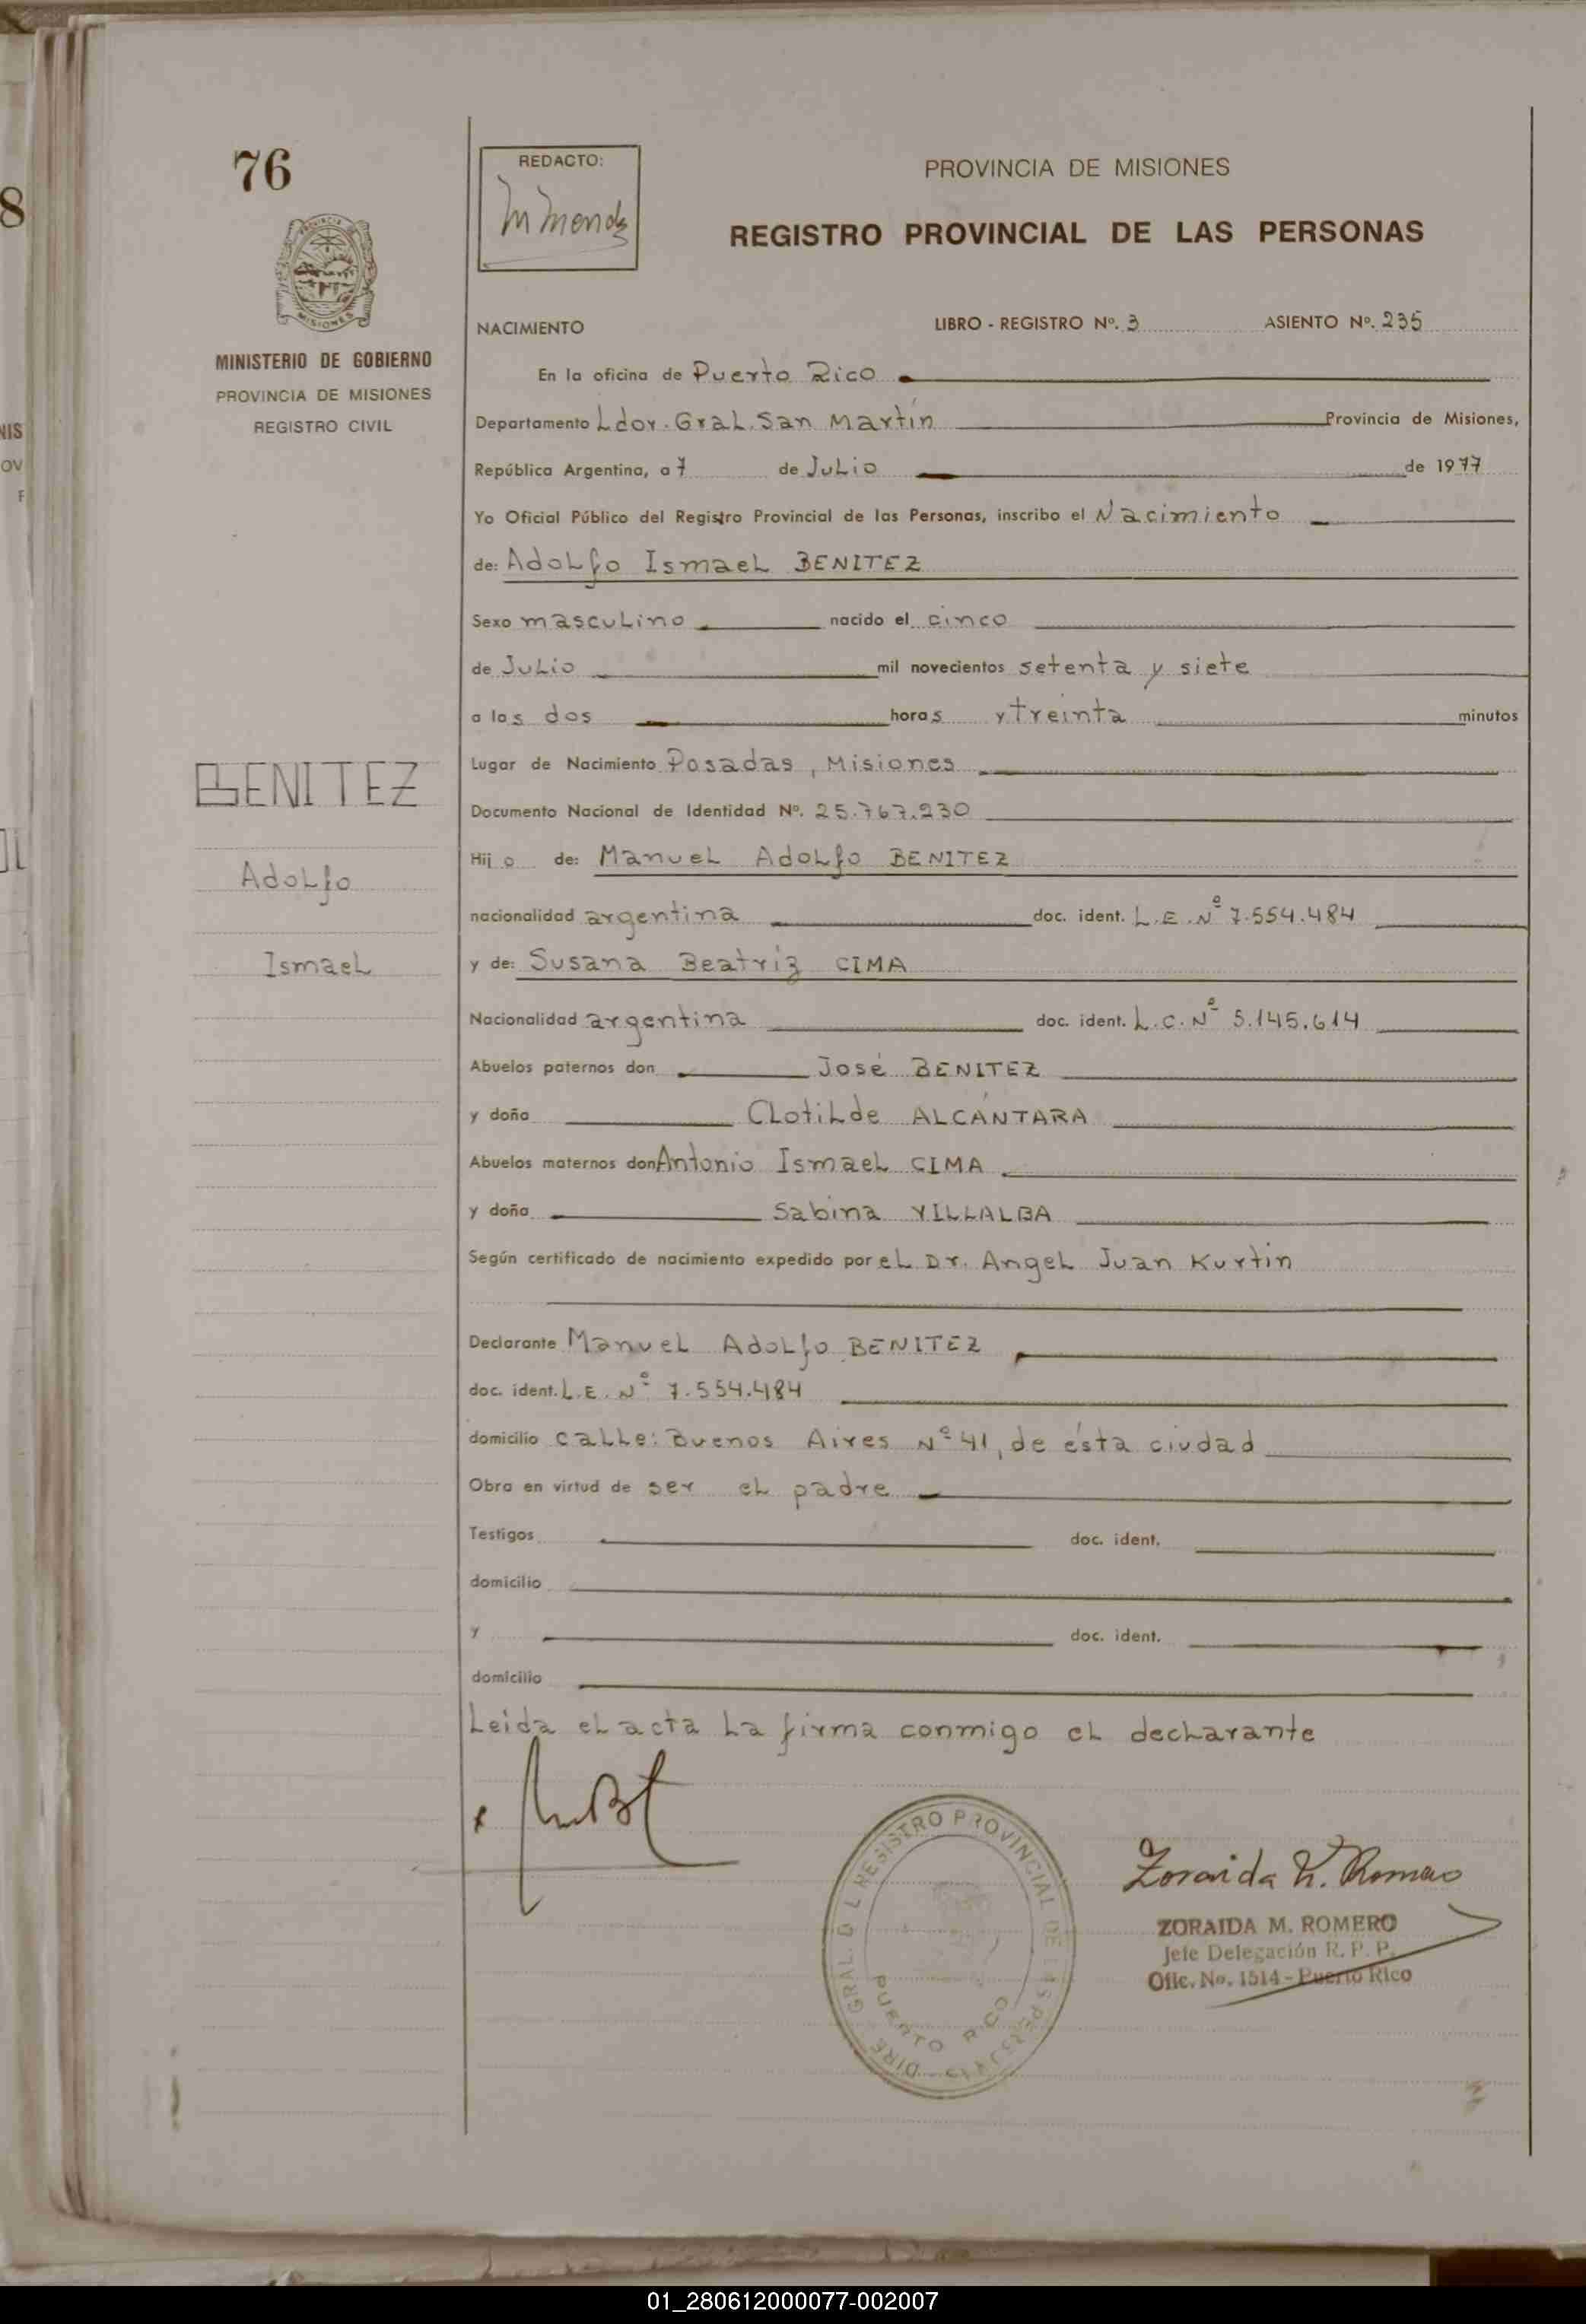 76
REDACTO:
PROVINCIA DE MISIONES
REGISTRO PROVINCIAL DE LAS PERSONAS
MISIONES
MINISTERIO DE GOBIERNO
PROVINCIA DE MISIONES
REGISTRO CIVIL
NACIMIENTO LIBRO - REGISTRO Nº. 3 ASIENTO Nº. 235
En la oficina de Puerto Rico
Departamento Ldor. Gral. San Martín Provincia de Misiones,
República Argentina, a 7 de Julio de 1977
Yo Oficial Público del Registro Provincial de las Personas, inscribo el Nacimiento
de: Adolfo Ismael BENITEZ
Sexo masculino nacido el cinco
de Julio mil novecientos setenta y siete
a las dos horas y treinta minutos
BENITEZ
Adolfo
Ismael
Lugar de Nacimiento Posadas, Misiones
Documento Nacional de Identidad Nº. 25.767.230
Hijo de: Manuel Adolfo BENITEZ
nacionalidad argentina doc. ident. L.E. Nº 7.554.484
y de: Susana Beatriz CIMA
Nacionalidad argentina doc. ident. L.C. Nº 5.145.614
Abuelos paternos don José BENITEZ
y doña Clotilde ALCÁNTARA
Abuelos maternos don Antonio Ismael CIMA
y doña Sabina VILLALBA
Según certificado de nacimiento expedido por el Dr. Angel Juan Kurtin
Declarante Manuel Adolfo BENITEZ
doc. ident. L.E. Nº 7.554.484
domicilio calle: Buenos Aires Nº 41, de ésta ciudad
Obra en virtud de ser el padre
Testigos doc. ident.
domicilio
y doc. ident.
domicilio
Leida el acta la firma conmigo el declarante
REGISTRO PROVINCIAL DE LAS PERSONAS
PUERTO RICO
Zoraida M. Romero
ZORAIDA M. ROMERO
Jefe Delegación R. P. P.
Ofic. No. 1514 - Puerto Rico
01_280612000077-002007